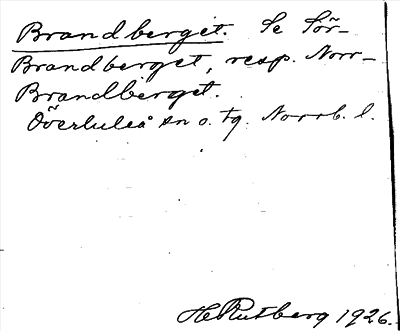 Brandberget. Se Sör-
Brandberget, resp. Norr-
Brandberget.
Överluleå sn o. tg. Norrb. l.
H Rutberg 1926.